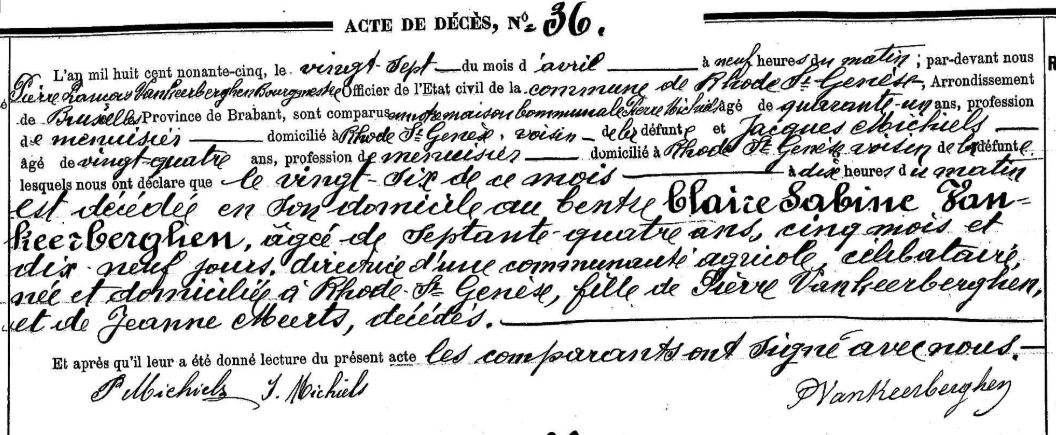 ACTE DE DÉCÈS, Nº 36.
L'an mil huit cent nonante-cinq, le vingt-sept du mois d'avril à neuf heures du matin ; par-devant nous
Pierre François Vankeerberghen Bourgmestre Officier de l'Etat civil de la commune de Rhode St Genèse, Arrondissement
de Bruxelles Province de Brabant, sont comparus en notre maison communale Pierre Michiels âgé de quarante-un ans, profession
de menuisier domicilié à Rhode St Genèse, voisin de la défunte et Jacques Michiels
âgé de vingt-quatre ans, profession de menuisier domicilié à Rhode St Genèse voisin de la défunte
lesquels nous ont déclaré que le vingt-six de ce mois à dix heures du matin
est décédée en son domicile au Centre Claire Sabine Van-
keerberghen, âgée de septante-quatre ans, cinq mois et
dix neuf jours, directrice d'une communauté agricole, célibataire,
née et domiciliée à Rhode St Genèse, fille de Pierre Vankeerberghen,
et de Jeanne Meerts, décédés.
Et après qu'il leur a été donné lecture du présent acte les comparants ont signé avec nous.
P Michiels J. Michiels PVankeerberghen